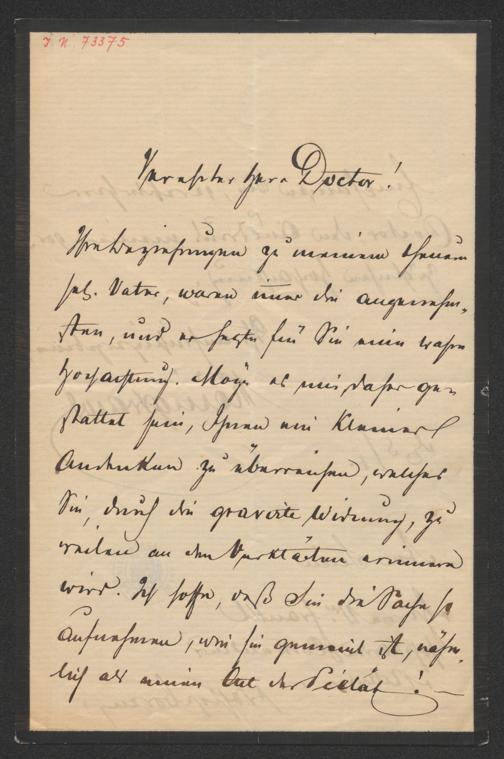 J. N. 73375
Verehrter Herr Doctor!
Ihre Beziehungen zu meinem theuern
sel. Vater, waren imer die angenehm-
sten, und er hegte für Sie eine wahre
Hochachtung. Möge es mir daher ge-
stattet sein, Ihnen ein kleines
Andenken zu überreichen, welches
Sie, durch die gravirte Widmung, zu
weilen an den Verklärten erinnern
wird. Ich hoffe, daß Sie die Sache so
aufnehmen, wie sie gemeint ist, nähm-
lich als einen Act der Pietät! —